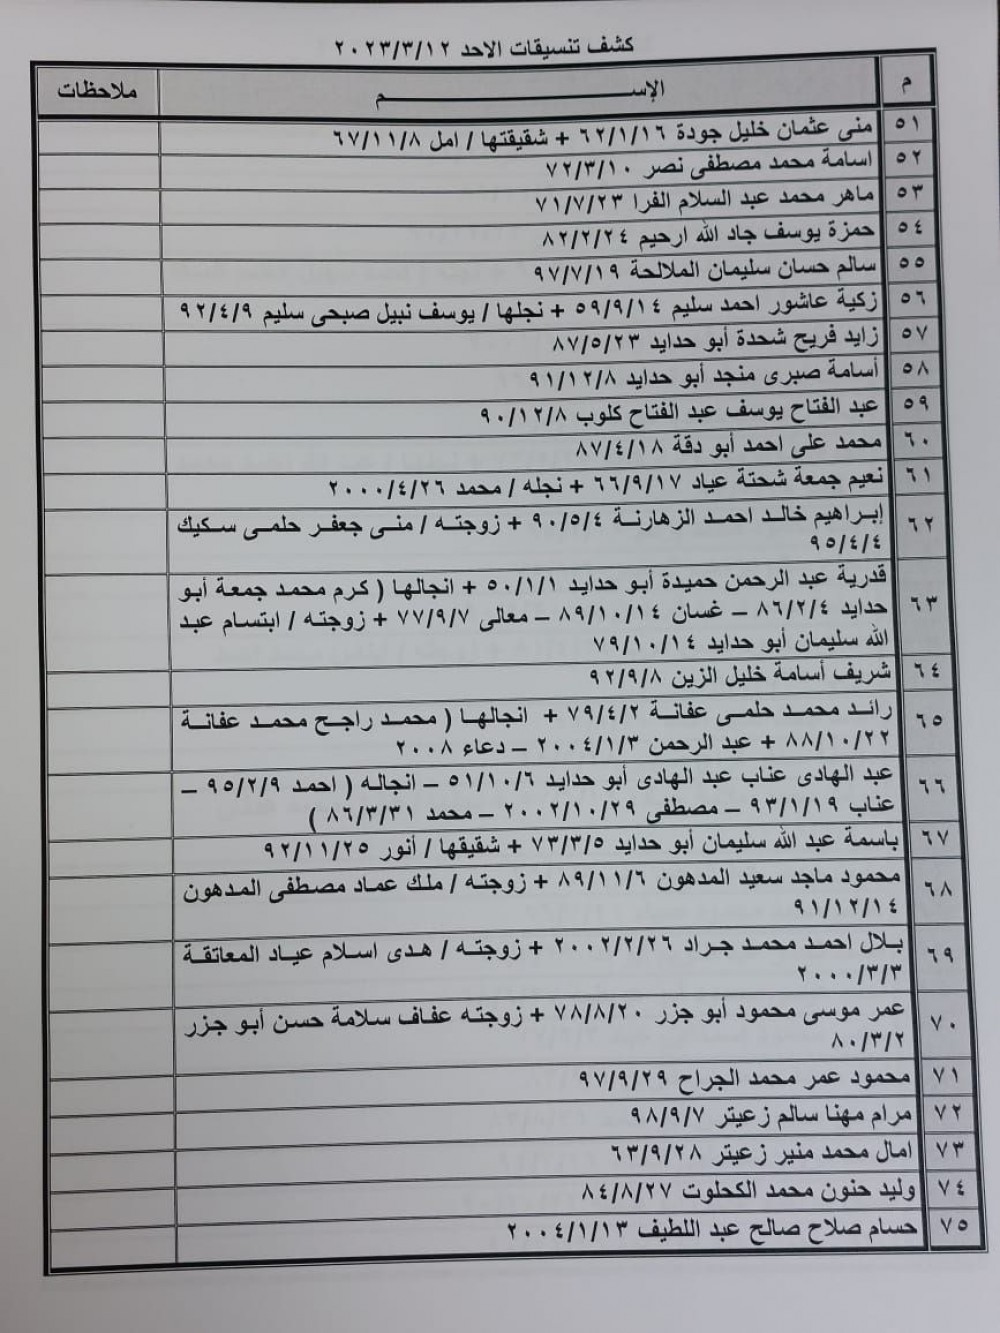 كشف تنسيقات الاحد ٢٠٢٣/٣/١٢
م الإســـــم ملاحظات
٥١ منى عثمان خليل جودة ٦٢/١/١٦ + شقيقتها / امل ٦٧/١١/٨
٥٢ اسامة محمد مصطفى نصر ٧٢/٣/١٠
٥٣ ماهر محمد عبد السلام الفرا ٧١/٧/٢٣
٥٤ حمزة يوسف جاد الله ارحيم ٨٢/٢/٢٤
٥٥ سالم حسان سليمان الملالحة ٩٧/٧/١٩
٥٦ زكية عاشور احمد سليم ٥٩/٩/١٤ + نجلها / يوسف نبيل صبحى سليم ٩٢/٤/٩
٥٧ زايد فريح شحدة أبو حدايد ٨٧/٥/٢٣
٥٨ أسامة صبرى منجد أبو حدايد ٩١/١٢/٨
٥٩ عبد الفتاح يوسف عبد الفتاح كلوب ٩٠/١٢/٨
٦٠ محمد على احمد أبو دقة ٨٧/٤/١٨
٦١ نعيم جمعة شحتة عياد ٦٦/٩/١٧ + نجله / محمد ٢٠٠٠/٤/٢٦
٦٢ إبراهيم خالد احمد الزهارنة ٩٠/٥/٤ + زوجته / منى جعفر حلمى سكيك
٩٥/٤/٤
٦٣ قدرية عبد الرحمن حميدة أبو حدايد ٥٠/١/١ + انجالها ( كرم محمد جمعة أبو
حدايد ٨٦/٢/٤ – غسان ٨٩/١٠/١٤ – معالى ٧٧/٩/٧ + زوجته / ابتسام عبد
الله سليمان أبو حدايد ٧٩/١٠/١٤
٦٤ شريف أسامة خليل الزين ٩٢/٩/٨
٦٥ رائد محمد حلمى عفانة ٧٩/٤/٢ + انجالها ( محمد راجح محمد عفانة
٨٨/١٠/٢٢ + عبد الرحمن ٢٠٠٤/١/٣ – دعاء ٢٠٠٨
٦٦ عبد الهادى عناب عبد الهادى أبو حدايد ٥١/١٠/٦ – انجاله ( احمد ٩٥/٢/٩ –
عناب ٩٣/١/١٩ – مصطفى ٢٠٠٢/١٠/٢٩ – محمد ٨٦/٣/٣١ )
٦٧ باسمة عبد الله سليمان أبو حدايد ٧٣/٣/٥ + شقيقها / أنور ٩٢/١١/٢٥
٦٨ محمود ماجد سعيد المدهون ٨٩/١١/٦ + زوجته / ملك عماد مصطفى المدهون
٩١/١٢/١٤
٦٩ بلال احمد محمد جراد ٢٠٠٢/٢/٢٦ + زوجته / هدى اسلام عياد المعاتقة
٢٠٠٠/٣/٣
٧٠ عمر موسى محمود أبو جزر ٧٨/٨/٢٠ + زوجته عفاف سلامة حسن أبو جزر
٨٠/٣/٢
٧١ محمود عمر محمد الجراح ٩٧/٩/٢٩
٧٢ مرام مهنا سالم زعيتر ٩٨/٩/٧
٧٣ امال محمد منير زعيتر ٦٣/٩/٢٨
٧٤ وليد حنون محمد الكحلوت ٨٤/٨/٢٧
٧٥ حسام صلاح صالح عبد اللطيف ٢٠٠٤/١/١٣